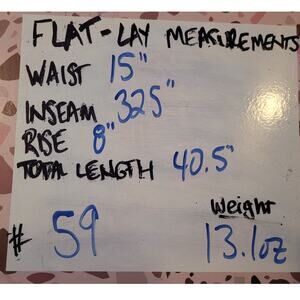 FLAT-LAY MEASUREMENTS
WAIST 15"
INSEAM 32.5"
RISE 8"
TOTAL LENGTH 40.5"
# 59
Weight
13.1oz